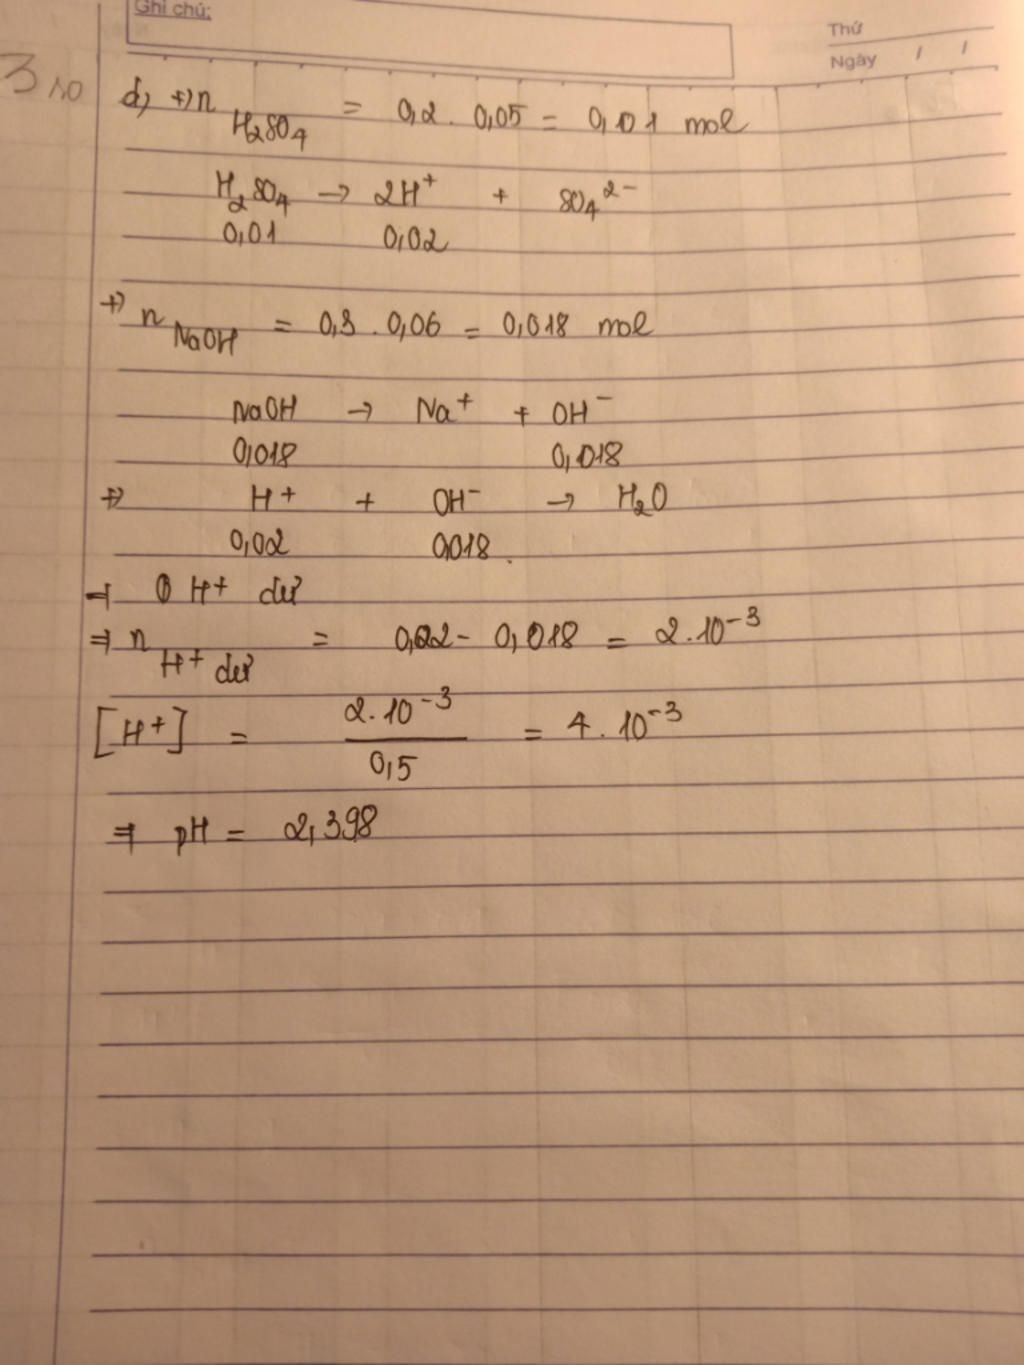 Ghi chú:
Thứ
Ngày / /
3.10
d, +) n H₂SO₄ = 0,2 . 0,05 = 0,01 mol
H₂SO₄ → 2H⁺ + SO₄²⁻
0,01 0,02
+) n NaOH = 0,3 . 0,06 = 0,018 mol
NaOH → Na⁺ + OH⁻
0,018 0,018
+) H⁺ + OH⁻ → H₂O
0,02 0,018
⇒ H⁺ dư
⇒ n H⁺ dư = 0,02 - 0,018 = 2.10⁻³
[H⁺] = 2.10⁻³ / 0,5 = 4.10⁻³
⇒ pH = 2,398